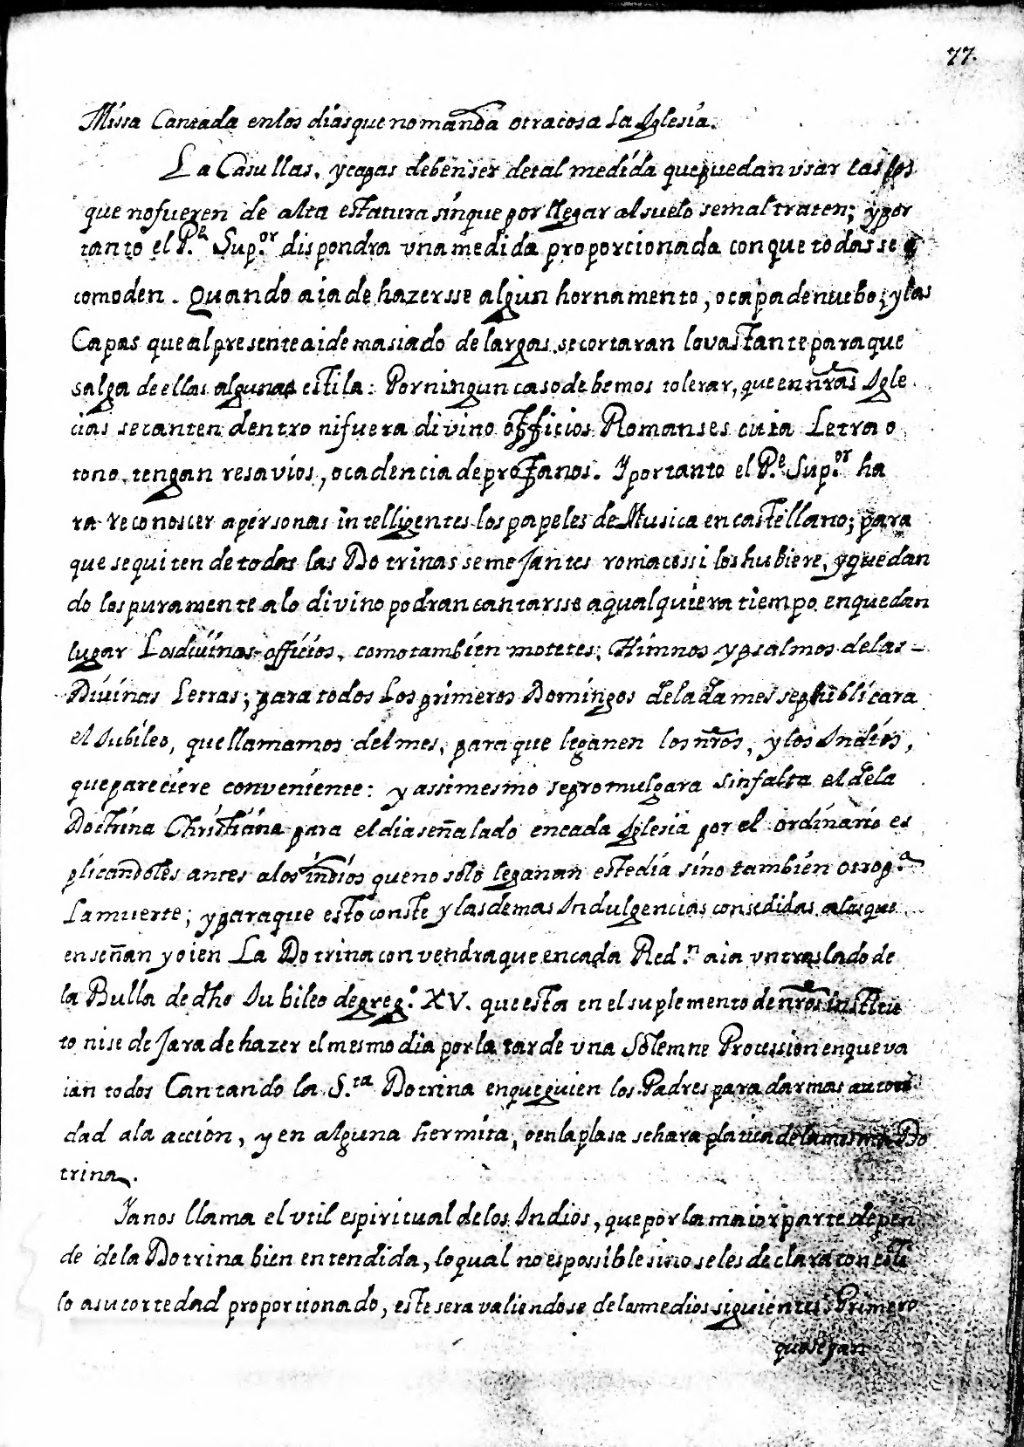 77.
Missa Cantada en los dias que no manda otra cosa La Iglesia.
La Casullas, y capas deben ser de tal medida que puedan usar las los
que no fueren de alta estatura sin que por llegar al suelo se mal traten; y por
tanto el P.e Sup.or dispondra vna medida proporcionada con que todas se a
comoden. Quando aia de hazersse algun hornamento, o capa de nuebo; y las
Capas que al presente ai demasiado de largas, se cortaran lo vastante para que
salga de ellas alguna estila: Por ningun caso debemos tolerar, que en nras Igle
cias se canten dentro ni fuera divino officios Romanses cuia Letra o
tono, tengan resavios, o cadencia de profanos. Y por tanto el P.e Sup.or ha
ra reconoscer a personas intelligentes los papeles de Musica en castellano; para
que se quiten de todas las Dotrinas semejantes romacessi los hubiere, y quedan
do los puramente a lo divino podran cantarsse a qualquiera tiempo en que dan
lugar Los divinos officios, como tambien motetes, Himnos y psalmos de las
Divinas Letras; para todos Los primeros Domingos de cada mes se publicara
el Jubileo, que llamamos del mes, para que le ganen los nros, y los Indios,
que pareciere conveniente: y assimesmo se promulgara sin falta el de la
Doctrina Christiana para el dia señalado en cada Iglesia por el ordinario es
plicandoles antes a los indios que no solo le ganan este dia sino tambien otro p.a
La muerte; y para que esto conste y las demas Indulgencias consedidas a los que
enseñan y oien La Dotrina convendra que en cada Red.n aia vn traslado de
la Bulla de dho Jubileo de greg.o XV. que esta en el suplemento de nros institu
to ni se dejara de hazer el mesmo dia por la tarde vna Solemne Procession en que va
ian todos Cantando la S.ta Dotrina en que guien los Padres para dar mas autori
dad a la accion, y en alguna hermita, o en la plasa se hara platica de la misma Do
trina.
Ia nos llama el vtil espiritual de los Indios, que por la maior parte depen
de de la Dotrina bien entendida, lo qual no es possible sino se les declara con esti
lo a su cortedad proporcionado, este sera valiendose de los medios siguientes. Primero
que sepan